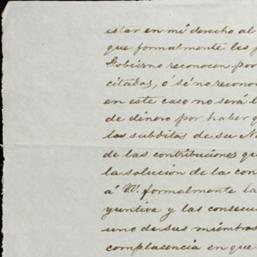 estar en mi derecho al
que formalmente les
Gobierno reconocen por
citados, ó sé no recono
en este caso no será l
de dinero por haber q
los subditos de su N
de las contribuciones qu
la solucion de la con
á W. formalmente la
yuntiva y las consecu
uno de sus miembros
complasencia en que